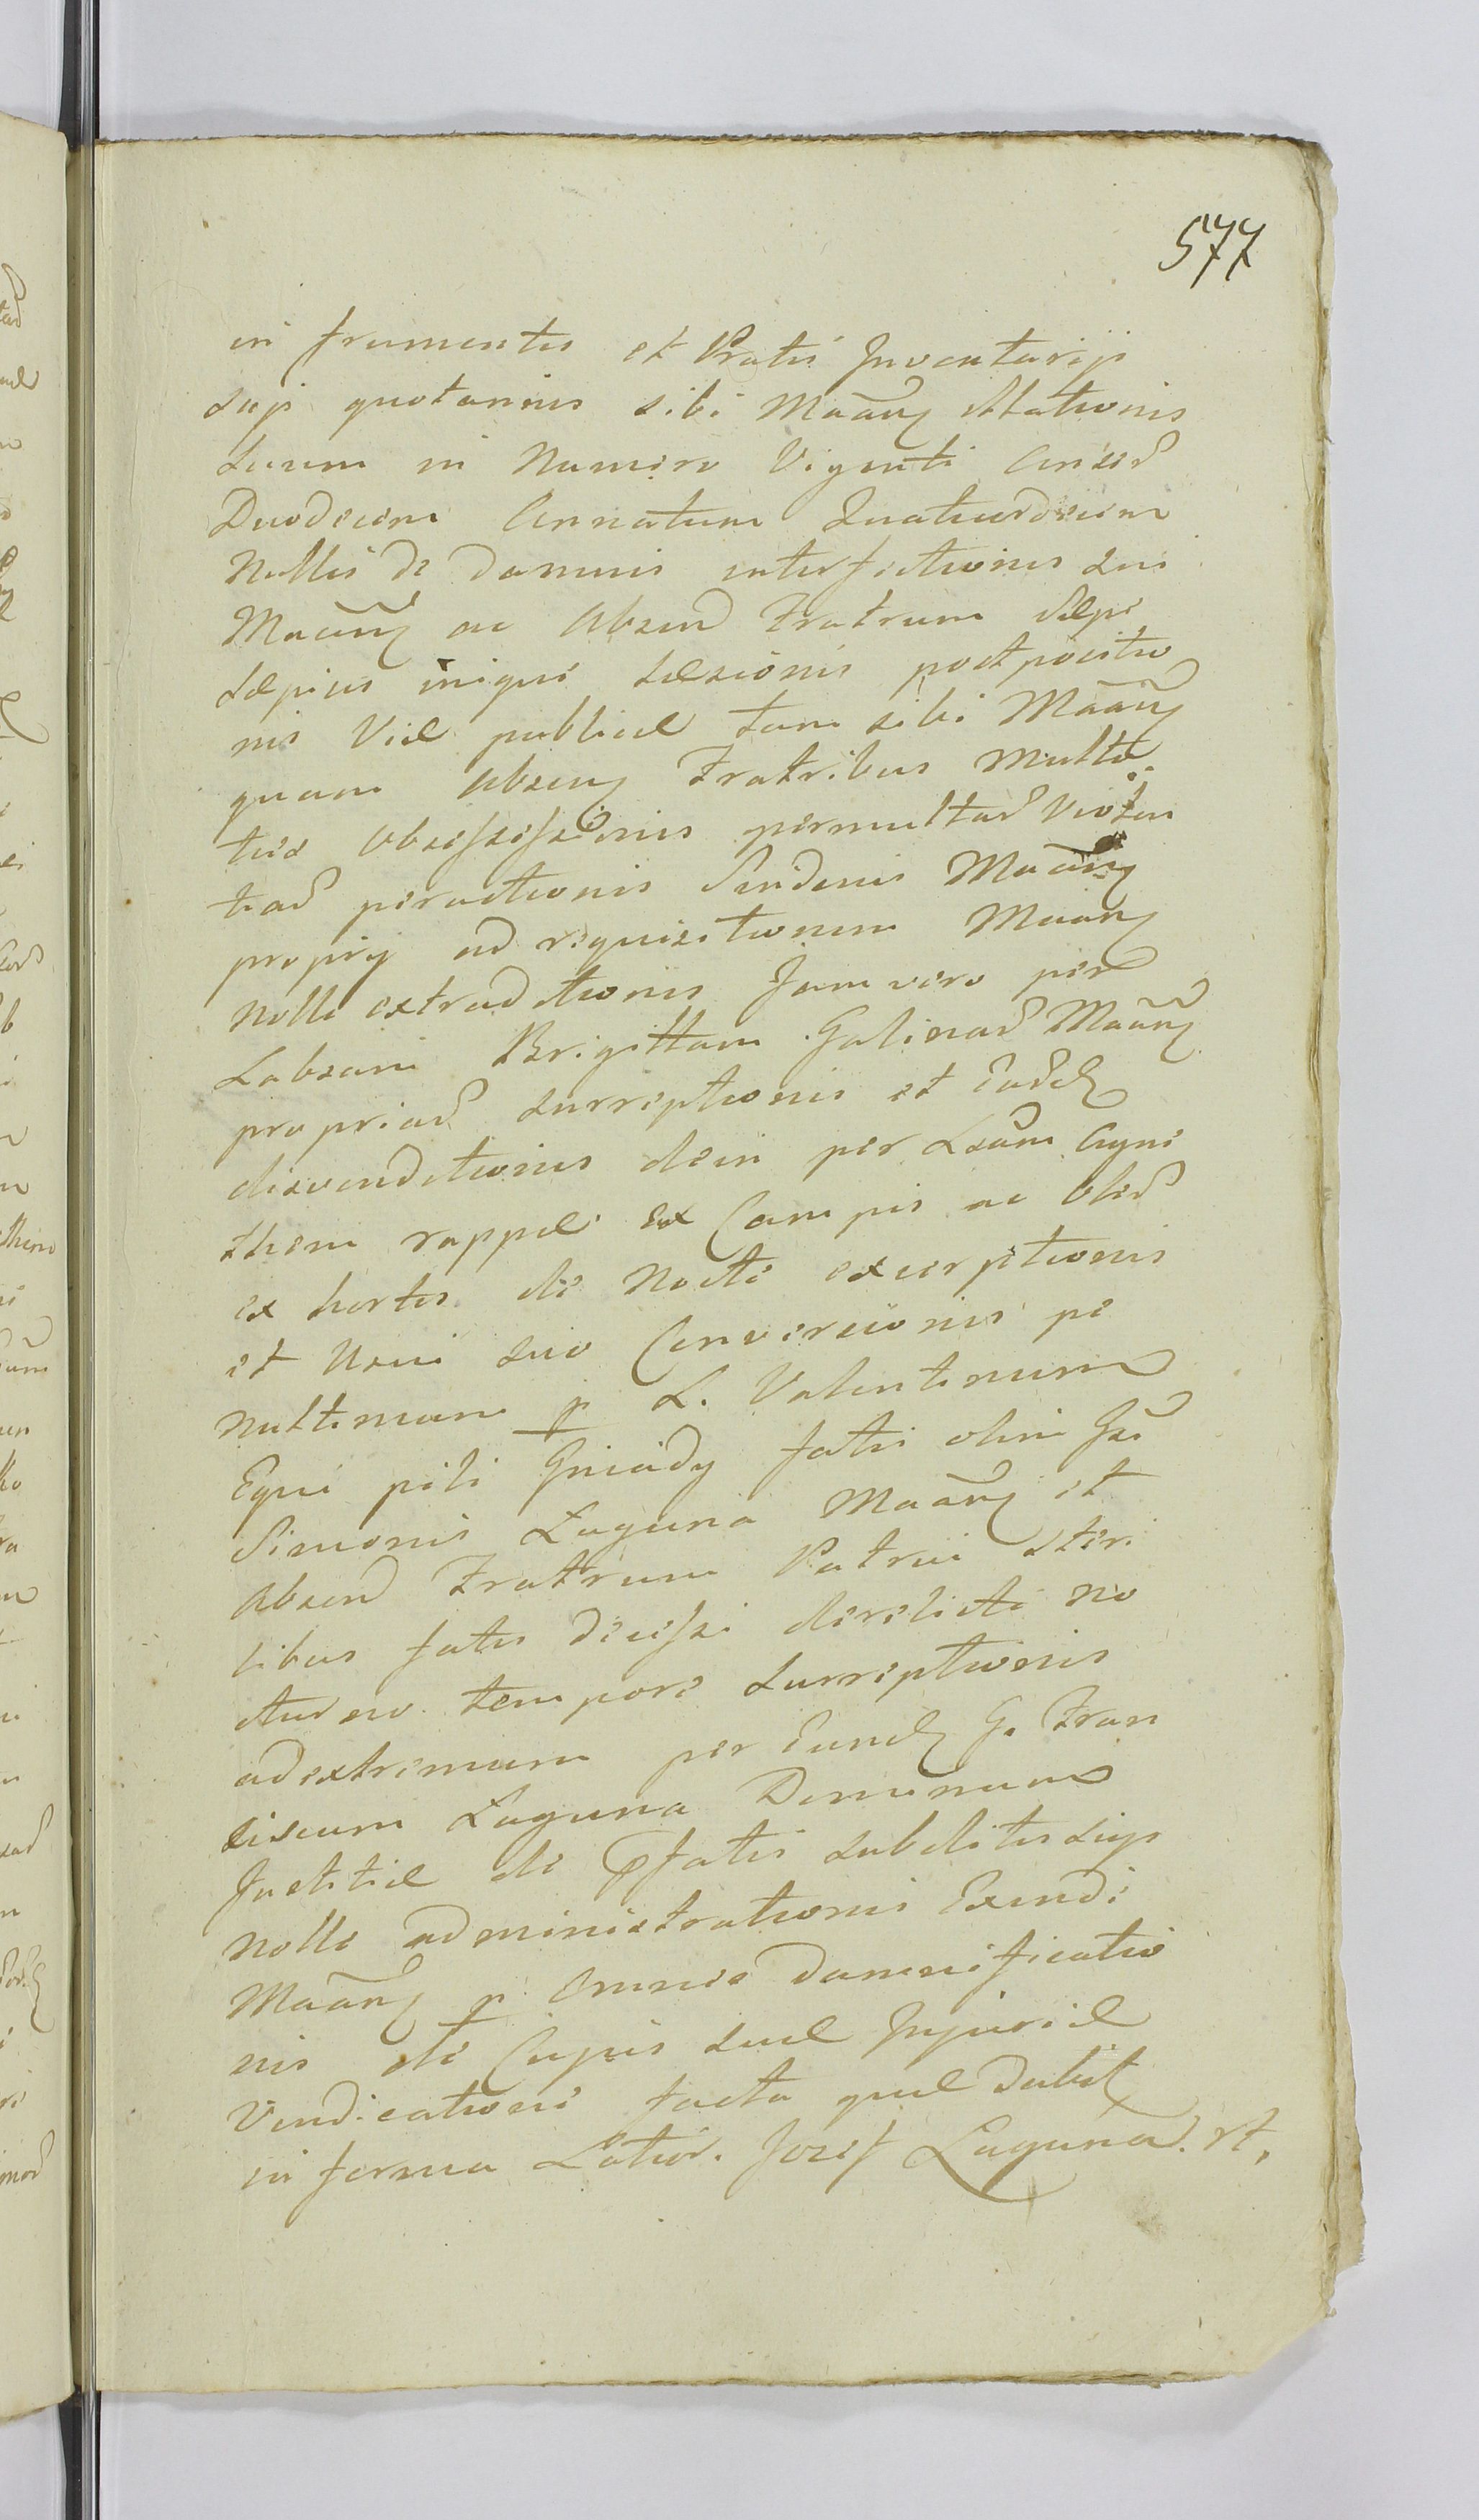 577
in frumentis et Pratis Inventarijs
suis quotannis sibi Maãn Illationis
Suum in Numero Viginti Anser
Duodecim Annatum Quatuordecim
Nullis de damnis interfectionis sui
Maãn ac Absend Fratrum Sæpe
Sæpius inique Læsionis postpositio
nis Viæ publicæ tam sibi Maãn
quam Absen Fratribus multo
ties Obsessionis permultas
peractionis Maãn
proprij ad requisitionem Maãn
nolle extraditionis Jam vero per
Labsam Brigittam Galinas Maãn
proprias surreptionis et Easd
disvenditionis dein per Lsam Agne
them rappæ ex Campis ac Oler
ex hortis de Nocte excerptionis
et Usui suo Conversionis pe
nultimum p L. Valentinum
Equi pili Gniady fati olim Gsi
Simonis Laguna Maãn et
Absend Fratrum Patrui Steri
libus fatis decessi derelicti no
cturno tempore surreptionis
ad extremum per Eund G. Fran
ciscum Laguna Dominum
Justitiæ de pfatis subditis suis
nolle administrationis Exinde
Maãn p omnes damnificatio
nis de Cujus suæ Injuriæ
Vindicationi facta quæ dabit
in forma Latior. Jozef Laguna. rt.